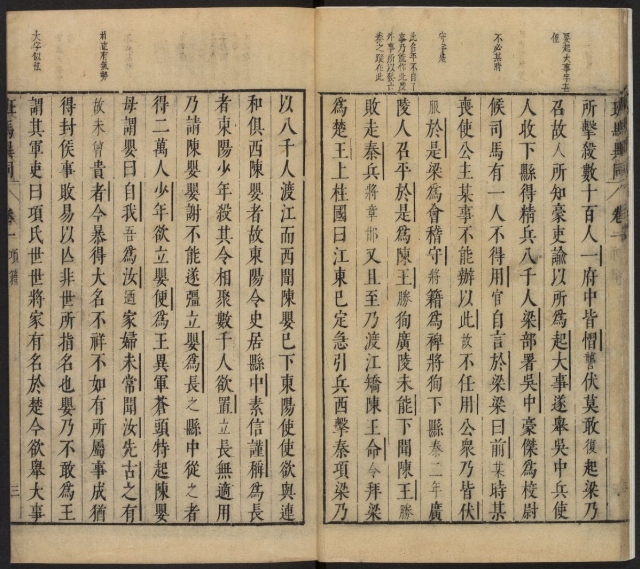 所擊殺數十百人一府中皆慴讋伏莫敢復起梁乃
召故人所知豪吏諭以所為起大事遂舉吳中兵使
人收下縣得精兵八千人梁部署吳中豪傑為校尉
候司馬有一人不得用官自言於梁梁曰前某時某
喪使公主某事不能辦以此故不任用公衆乃皆伏
服於是梁為會稽守將籍為裨將狥下縣秦二年廣
陵人召平於是為陳王勝狥廣陵未能下聞陳王勝
敗走秦兵將章邯又且至乃渡江矯陳王命令拜梁
為楚王上柱國曰江東已定急引兵西擊秦項梁乃
不必某時
守字是
班馬異同
卷一
以八千人渡江而西聞陳嬰已下東陽使使欲與連
和俱西陳嬰者故東陽令史居縣中素信謹稱為長
者東陽少年殺其令相聚數千人欲置立長無適用
乃請陳嬰嬰謝不能遂彊立嬰為長之縣中從之者
得二萬人少年欲立嬰便為王異軍蒼頭特起陳嬰
母謂嬰曰自我吾為汝迺家婦未常聞汝先古之有
故未曾貴者今暴得大名不祥不如有所屬事成猶
得封侯事敗易以亡非世所指名也嬰乃不敢為王
謂其軍吏曰項氏世世將家有名於楚今欲舉大事
大字似怯
班馬異同
卷一
項籍
三